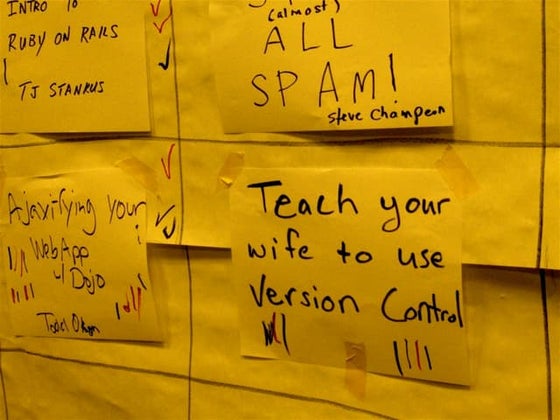 INTRO TO
RUBY ON RAILS
TJ STANKUS
(almost)
ALL
SPAM!
Steve Champeon
Ajaxifying your
WebApp
w/ Dojo
Todd
Teach your
wife to use
Version Control